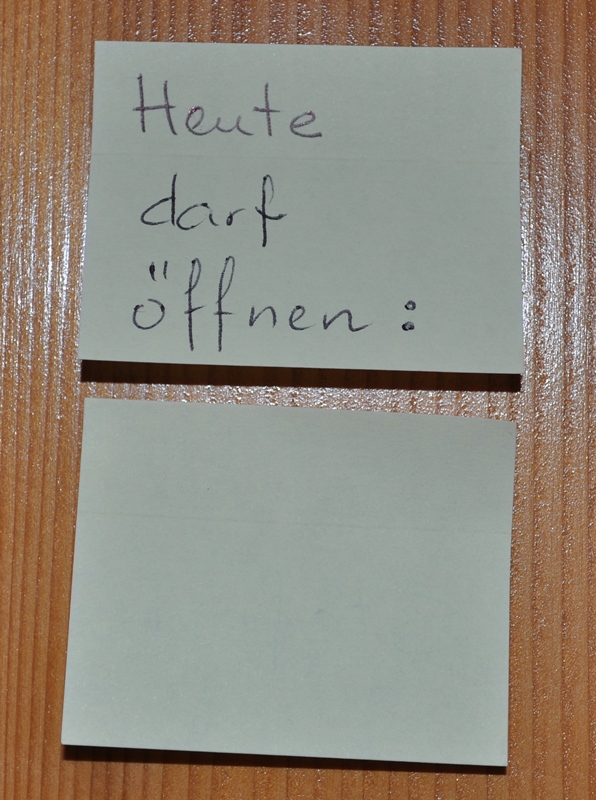 Heute
darf
öffnen: